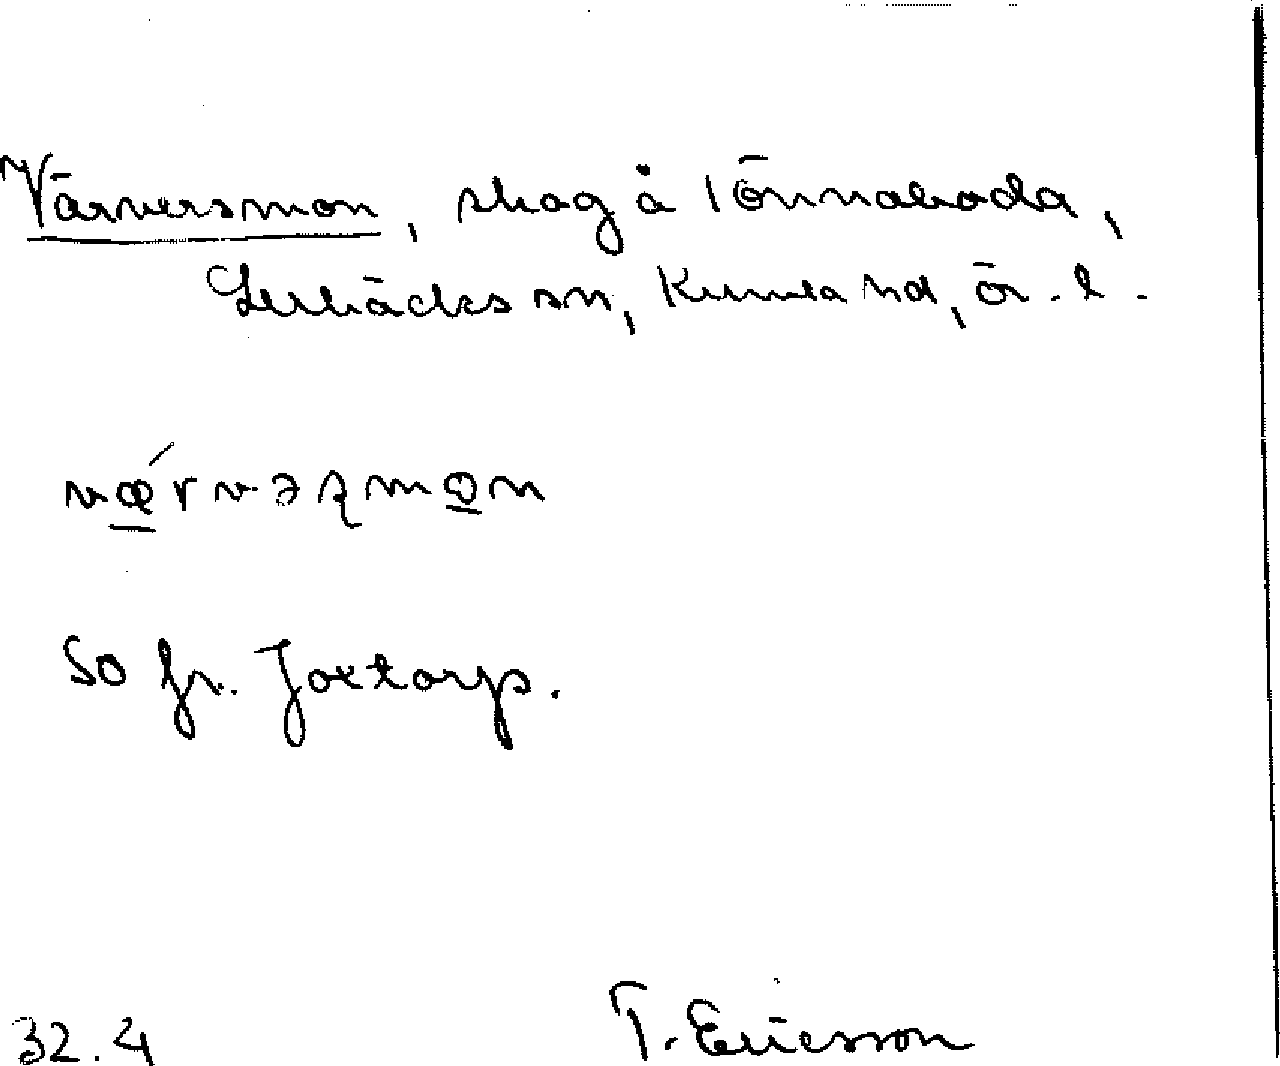 Värversmon, skog å Tönnaboda,
Lerbäcks sn, Kumla hd, Ör. l.
vǽrvəʀmɷn
SO fr. Joxtorp.
32.4 T. Ericsson